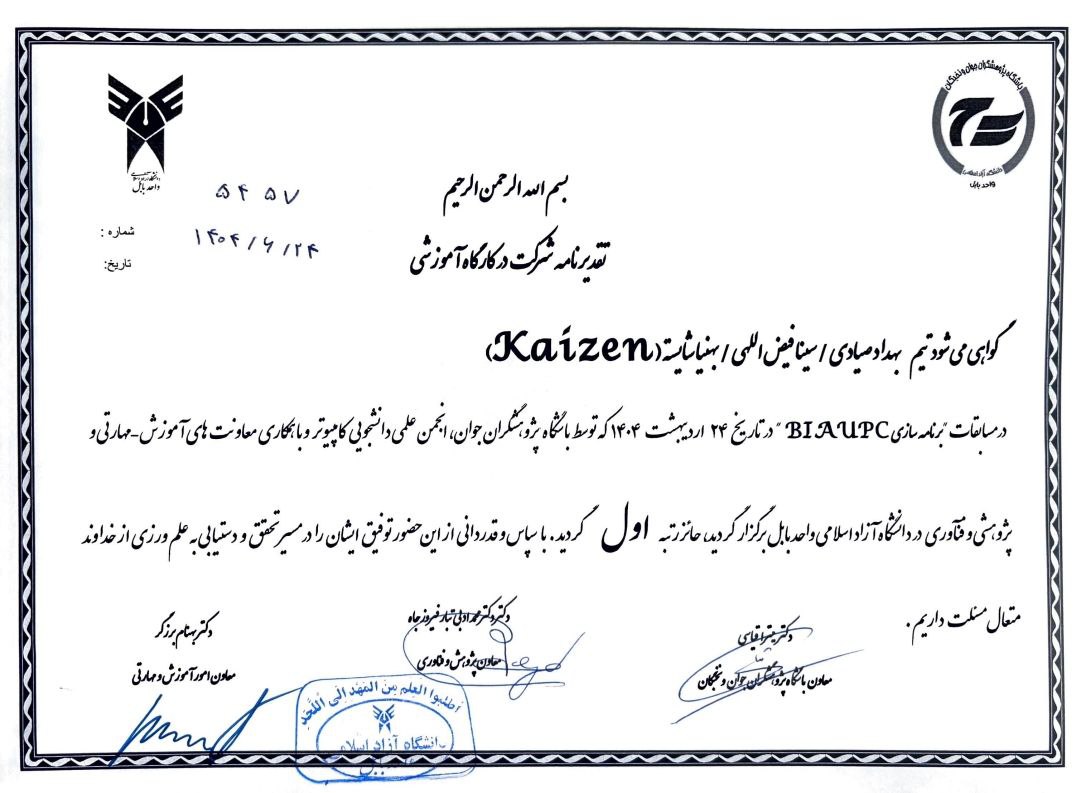 باشگاه پژوهشگران جوان و نخبگان
دانشگاه آزاد اسلامی
واحد بابل
دانشگاه آزاد اسلامی
واحد بابل
بسم الله الرحمن الرحیم
۵۴۵۷
شماره :
۱۴۰۴/۶/۲۴
تاریخ:
تقدیرنامه شرکت در کارگاه آموزشی
گواهی می شود تیم بهداد صیادی / سینا فیض اللهی / بهنیا شایسته (Kaizen)
در مسابقات "برنامه سازی BIAUPC" در تاریخ ۲۴ اردیبهشت ۱۴۰۴ که توسط باشگاه پژوهشگران جوان، انجمن علمی دانشجویی کامپیوتر و با همکاری معاونت های آموزش-مهارتی و
پژوهشی و فنآوری در دانشگاه آزاد اسلامی واحد بابل برگزار گردید، حائز رتبه اول گردید. با سپاس و قدردانی از این حضور توفیق ایشان را در مسیر تحقق و دستیابی به علم ورزی از خداوند
متعال مسئلت داریم.
دکتر
معاون باشگاه پژوهشگران جوان و نخبگان
دکتر محمد ادبی تبار فیروزجاه
معاون پژوهش و فناوری
دکتر بهنام برزگر
معاون امور آموزش و مهارتی
اطلبوا العلم من المهد الی اللحد
دانشگاه آزاد اسلامی